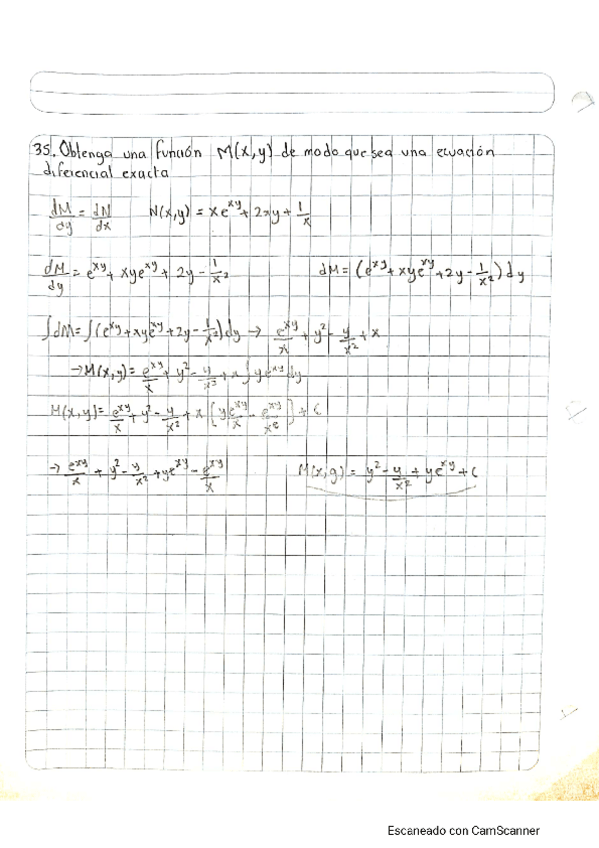 35. Obtenga una función M(x,y) de modo que sea una ecuación
diferencial exacta
dM/dy = dN/dx N(x,y) = xe^xy + 2xy + 1/x
dM/dy = e^xy + xye^xy + 2y - 1/x² dM = (e^xy + xye^xy + 2y - 1/x²) dy
∫dM = ∫(e^xy + xye^xy + 2y - 1/x²) dy → e^xy/x + y² - y/x² + x
→ M(x,y) = e^xy/x + y² - y/x² + x ∫ye^xy dy
M(x,y) = e^xy/x + y² - y/x² + x [ye^xy/x - e^xy/x²] + C
→ e^xy/x + y² - y/x² + ye^xy - e^xy/x M(x,y) = y² - y/x² + ye^xy + C
Escaneado con CamScanner